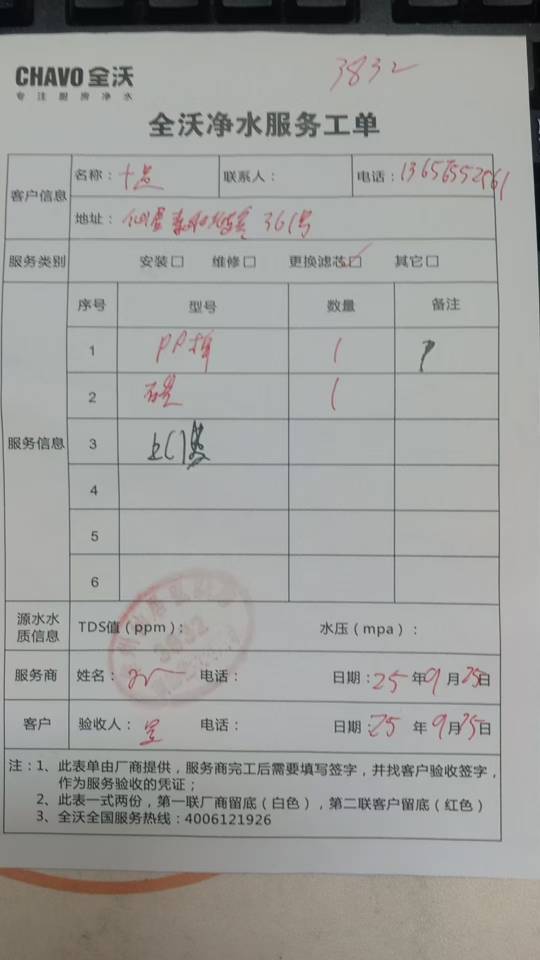 CHAVO全沃
专注厨房净水
3832
全沃净水服务工单
客户信息
名称： 联系人： 电话：
地址： 361号
服务类别 安装□ 维修□ 更换滤芯□ 其它□
服务信息
序号 型号 数量 备注
1 PP棉 1
2 1
3
4
5
6
源水水质信息 TDS值（ppm）： 水压（mpa）：
3832
服务商 姓名： 电话： 日期：25年9月25日
客户 验收人： 电话： 日期：25年9月25日
注：1、此表单由厂商提供，服务商完工后需要填写签字，并找客户验收签字，
作为服务验收的凭证；
2、此表一式两份，第一联厂商留底（白色），第二联客户留底（红色）
3、全沃全国服务热线：4006121926